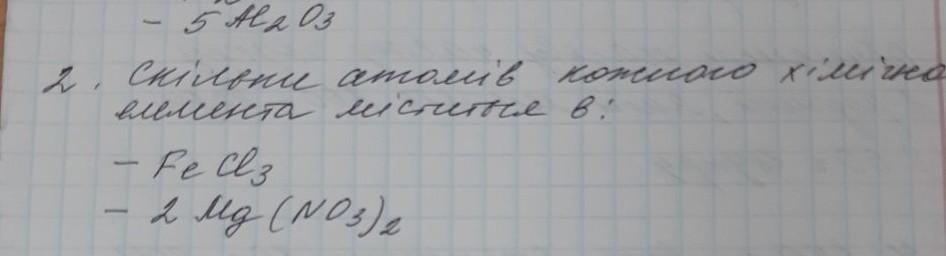 - 5 Al₂O₃
2. Скільки атомів кожного хімічно
елемента міститься в:
- FeCl₃
- 2 Mg(NO₃)₂